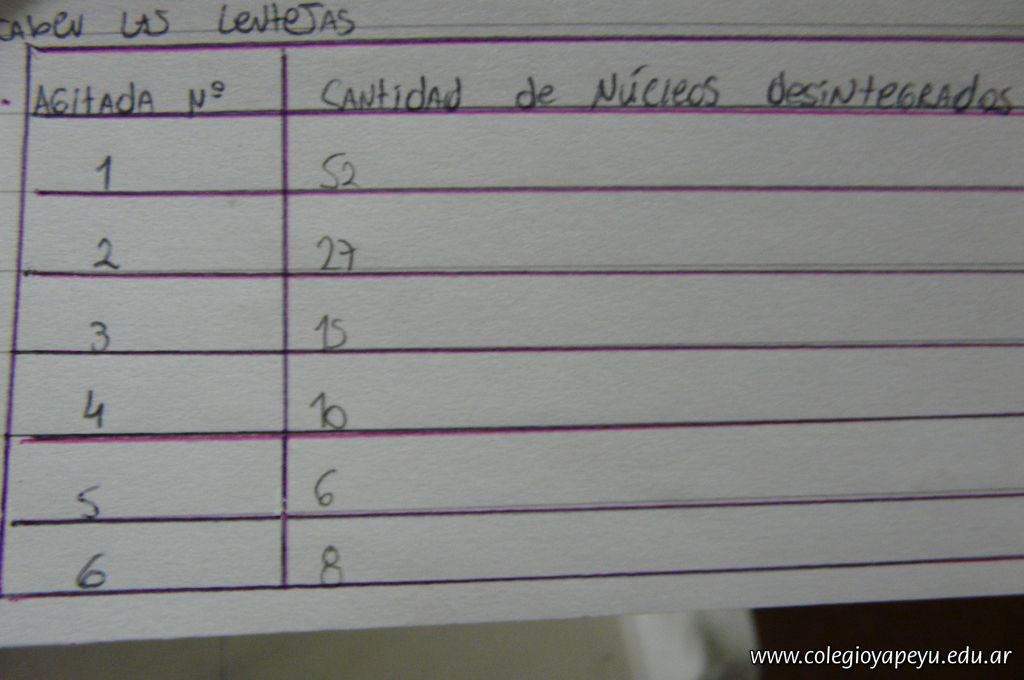 CABEN LAS LENTEJAS
AGITADA Nº CANTIDAD de NÚCLEOS DESINTEGRADOS
1 52
2 27
3 15
4 10
5 6
6 8
www.colegioyapeyu.edu.ar